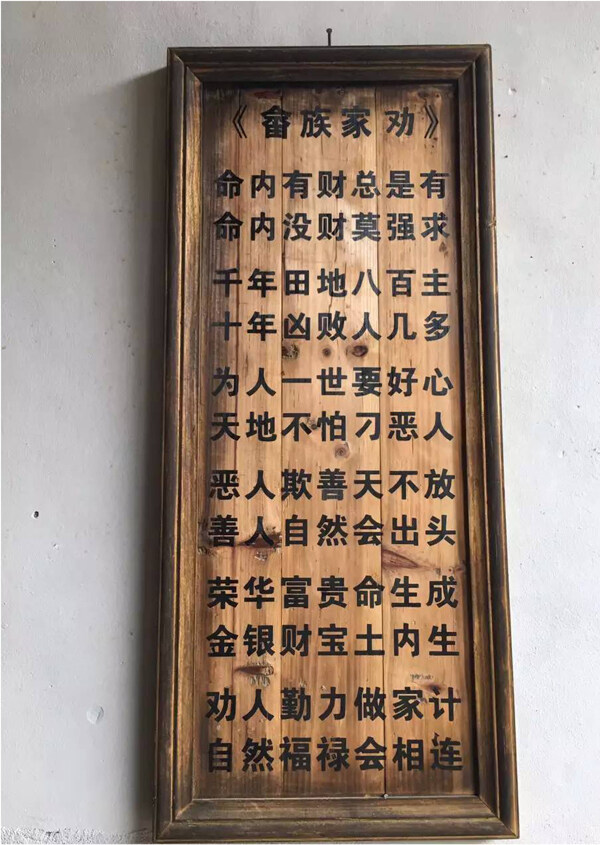 《畲族家劝》
命内有财总是有
命内没财莫强求
千年田地八百主
十年凶败人几多
为人一世要好心
天地不怕刁恶人
恶人欺善天不放
善人自然会出头
荣华富贵命生成
金银财宝土内生
劝人勤力做家计
自然福禄会相连